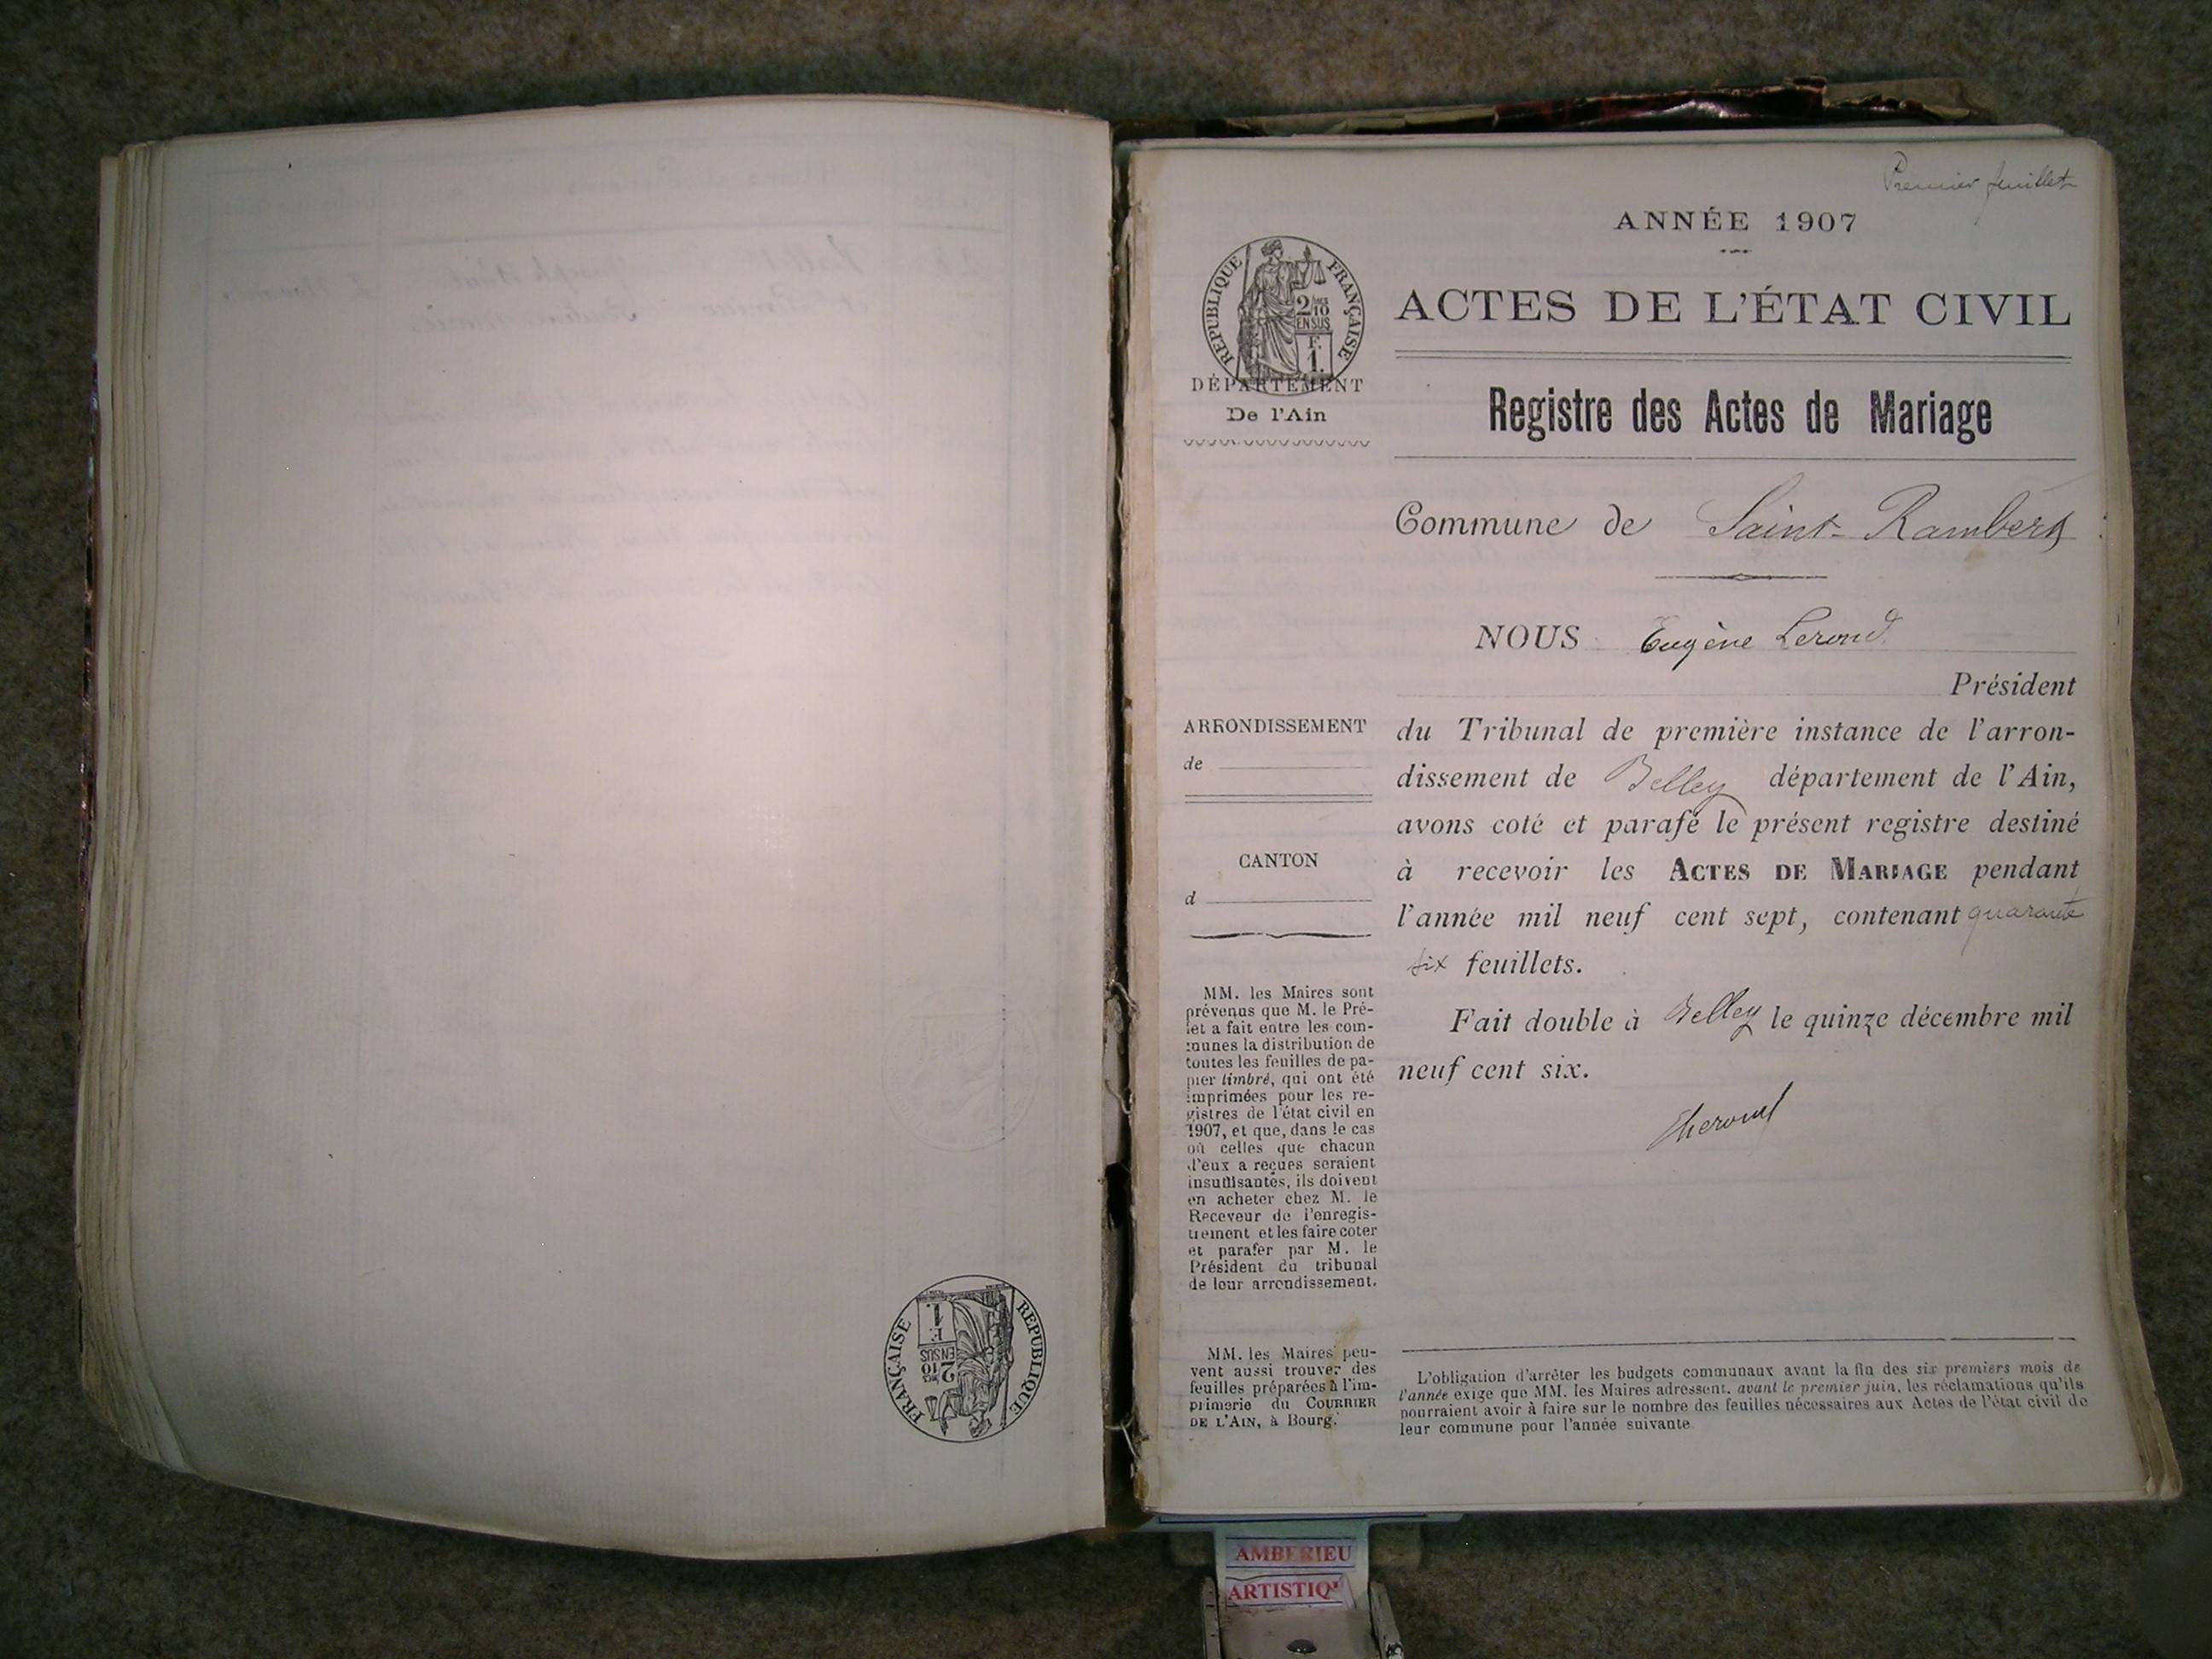 Premier feuillet
ANNÉE 1907
RÉPUBLIQUE FRANÇAISE
2/10
EN SUS
F.
1.
DÉPARTEMENT
De l'Ain
ACTES DE L'ÉTAT CIVIL
Registre des Actes de Mariage
Commune de Saint-Rambert
NOUS Eugène Lerond
Président
du Tribunal de première instance de l'arron-
dissement de Belley département de l'Ain,
avons coté et parafé le présent registre destiné
à recevoir les ACTES DE MARIAGE pendant
l'année mil neuf cent sept, contenant quarante
six feuillets.
Fait double à Belley le quinze décembre mil
neuf cent six.
ARRONDISSEMENT
de
CANTON
d
MM. les Maires sont
prévenus que M. le Pré-
fet a fait entre les com-
munes la distribution de
toutes les feuilles de pa-
pier timbré, qui ont été
imprimées pour les re-
gistres de l'état civil en
1907, et que, dans le cas
où celles que chacun
d'eux a reçues seraient
insuffisantes, ils doivent
en acheter chez M. le
Receveur de l'enregis-
trement et les faire coter
et parafer par M. le
Président du tribunal
de leur arrondissement.
MM. les Maires peu-
vent aussi trouver des
feuilles préparées à l'im-
primerie du COURRIER
DE L'AIN, à Bourg.
L'obligation d'arrêter les budgets communaux avant la fin des six premiers mois de
l'année exige que MM. les Maires adressent, avant le premier juin, les réclamations qu'ils
pourraient avoir à faire sur le nombre des feuilles nécessaires aux Actes de l'état civil de
leur commune pour l'année suivante.
RÉPUBLIQUE FRANÇAISE
2/10
EN SUS
F.
1.
AMBERIEU
ARTISTIQ